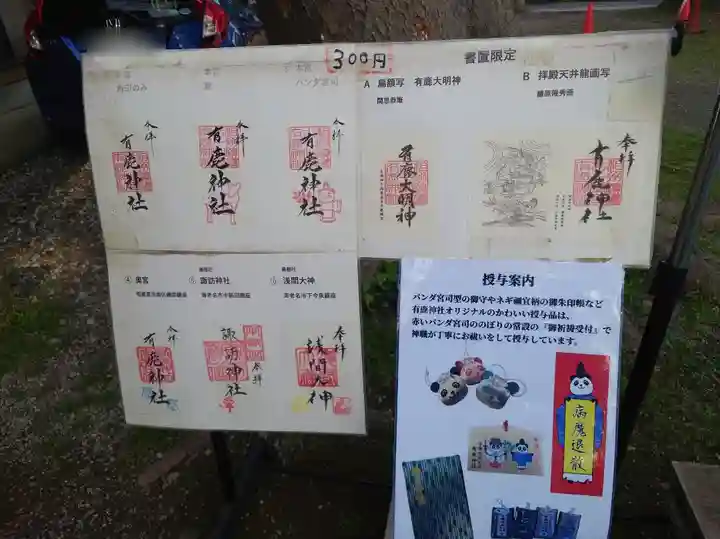 300円
書置限定
本宮
角印のみ
鹿
パンダ宮司
A 扁額写 有鹿大明神
B 拝殿天井龍画写
藤原隆秀画
奉拝
有鹿神社
奉拝
有鹿神社
奉拝
有鹿神社
有鹿大明神
奉拝
有鹿神社
④ 奥宮
諏訪神社
浅間大神
奉拝
有鹿神社
諏訪神社
奉拝
奉拝
浅間大神
授与案内
パンダ宮司型の御守やネギ禰宜柄の御朱印帳など
有鹿神社オリジナルのかわいい授与品は、
赤いパンダ宮司ののぼりの常設の『御祈祷受付』で
神職が丁寧にお祓いをして授与しています。
病魔退散